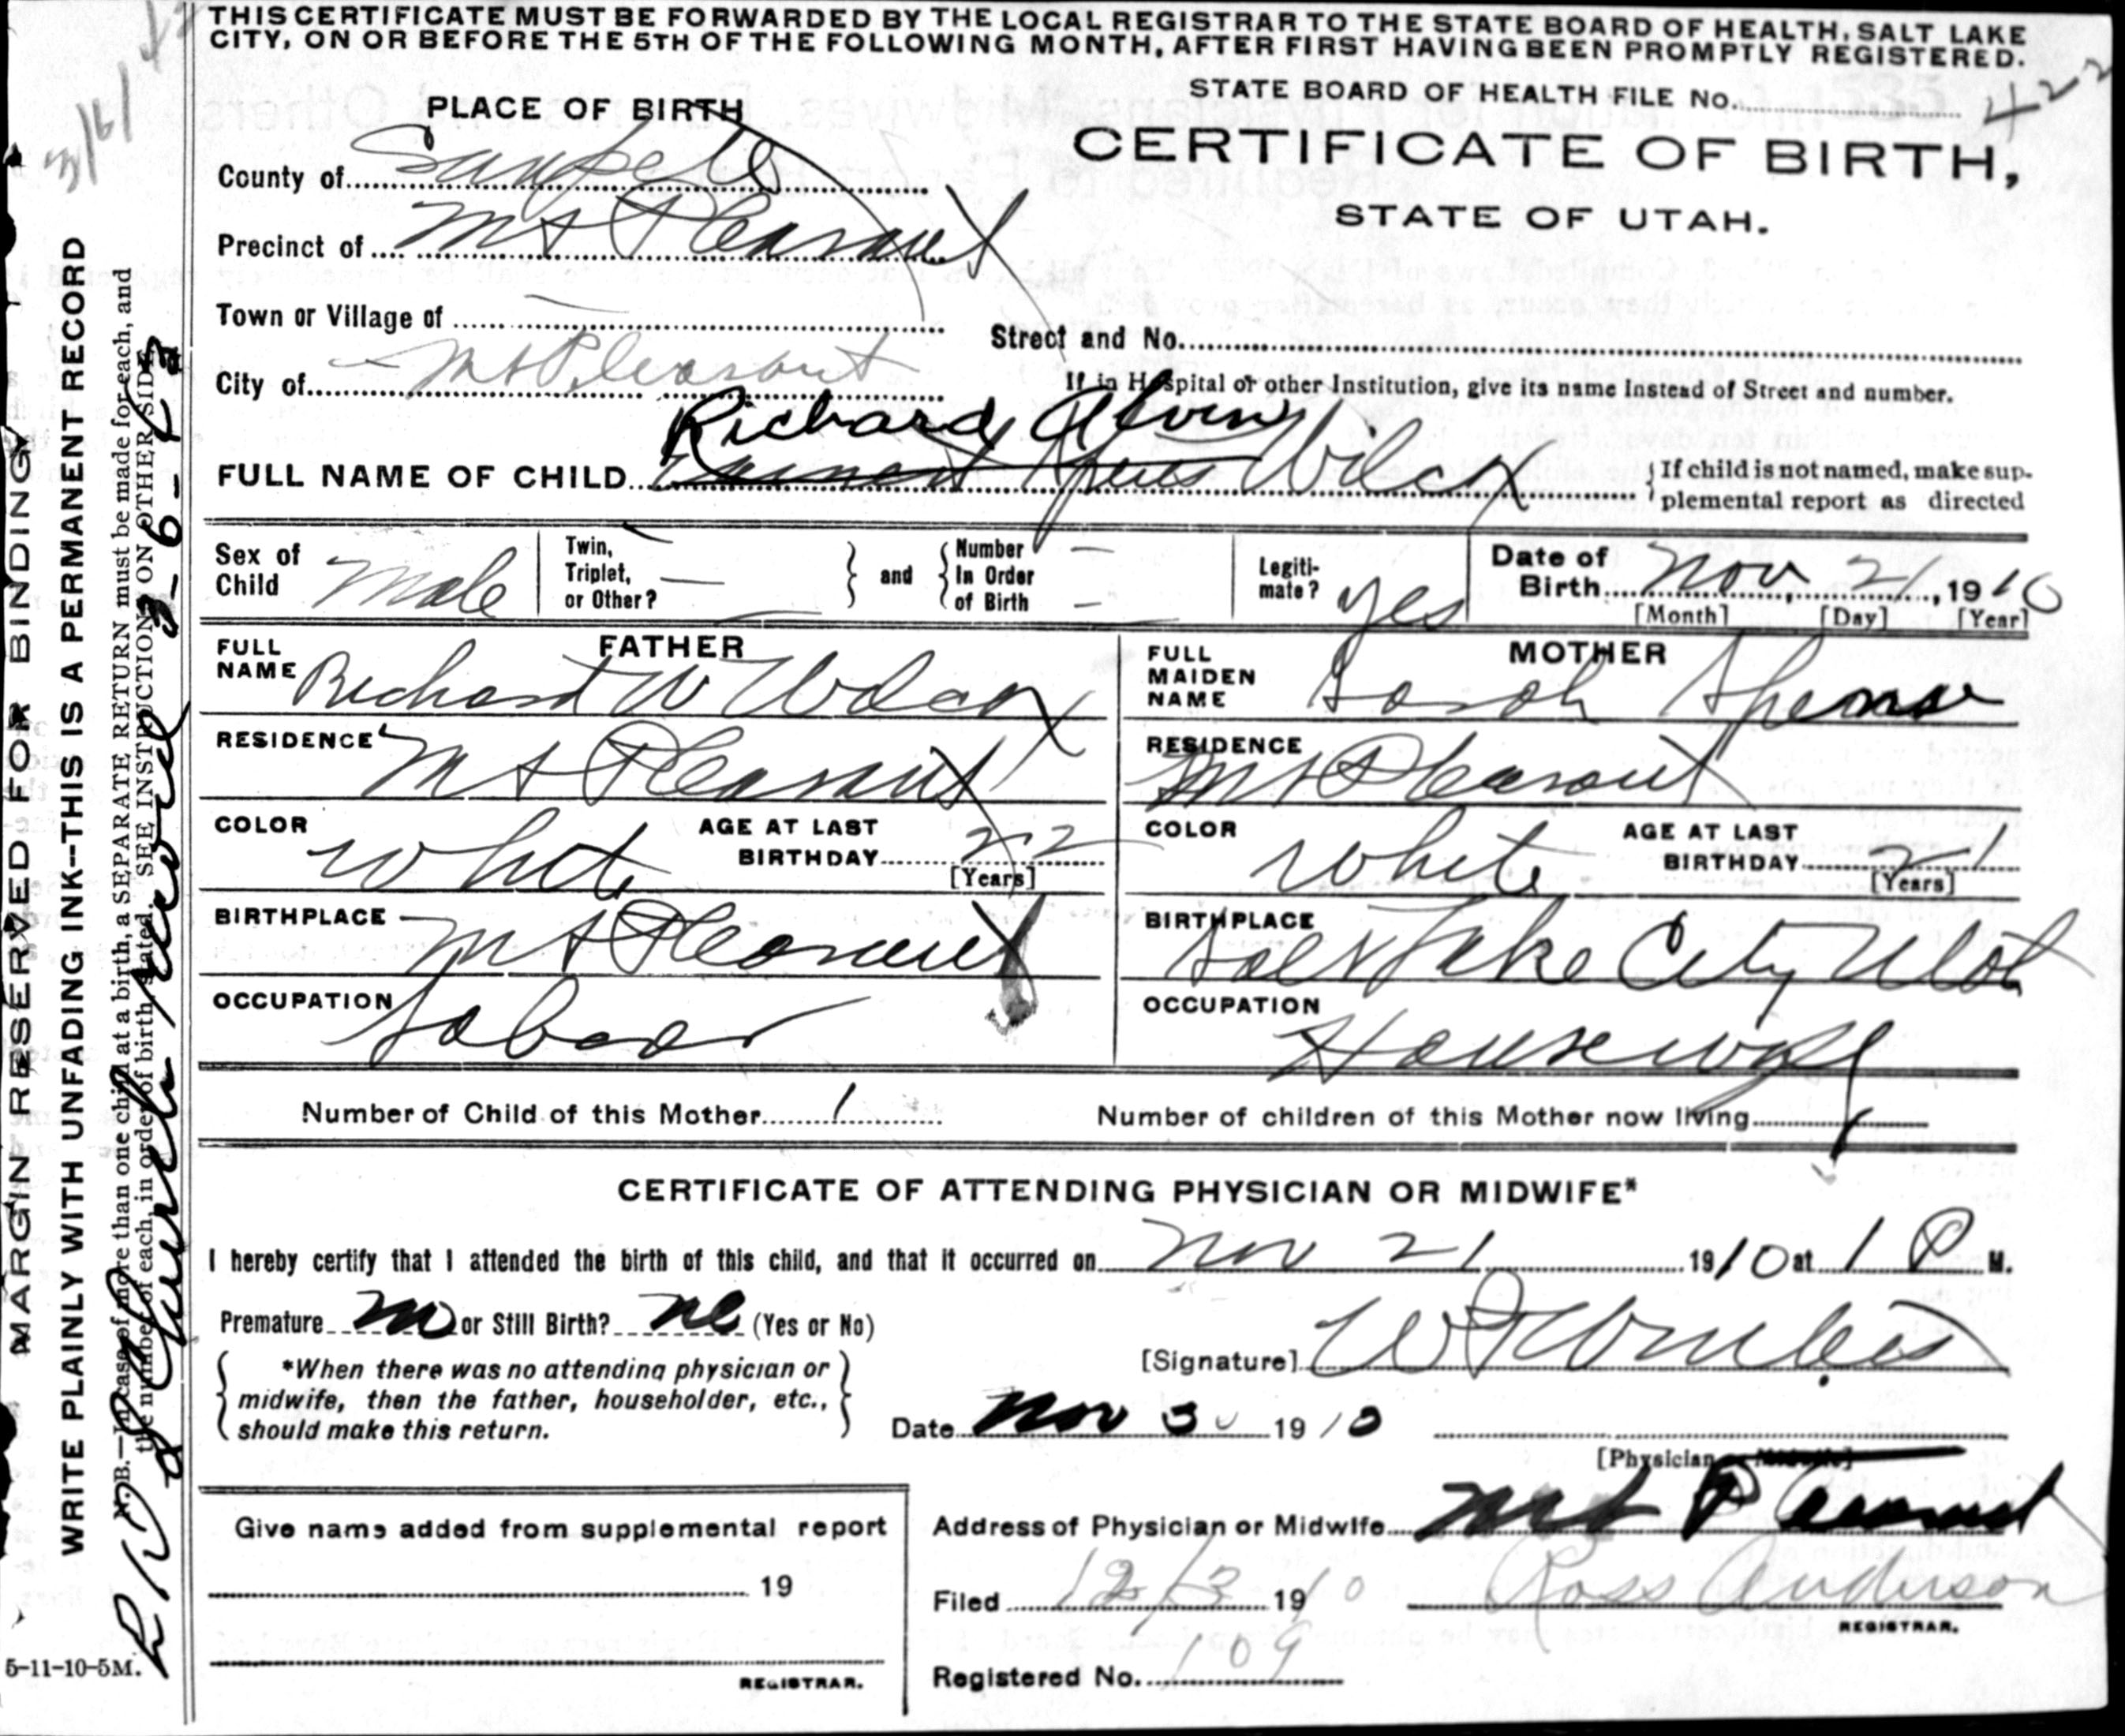 THIS CERTIFICATE MUST BE FORWARDED BY THE LOCAL REGISTRAR TO THE STATE BOARD OF HEALTH, SALT LAKE
CITY, ON OR BEFORE THE 5TH OF THE FOLLOWING MONTH, AFTER FIRST HAVING BEEN PROMPTLY REGISTERED.
STATE BOARD OF HEALTH FILE No. 422
PLACE OF BIRTH
CERTIFICATE OF BIRTH,
STATE OF UTAH.
County of Sanpete
Precinct of Mt Pleasant
Town or Village of —
Street and No.
City of Mt Pleasant
If in Hospital or other Institution, give its name Instead of Street and number.
Richard Alvin
FULL NAME OF CHILD Wilcox
{ If child is not named, make sup-
plemental report as directed
Sex of Child Male
Twin, Triplet, or Other? —
and
Number In Order of Birth —
Legiti-mate? yes
Date of Birth Nov 21, 1910
[Month] [Day] [Year]
FATHER
FULL NAME Richard W Wilcox
RESIDENCE Mt Pleasant
COLOR White
AGE AT LAST BIRTHDAY 22
[Years]
BIRTHPLACE Mt Pleasant
OCCUPATION Labor
MOTHER
FULL MAIDEN NAME Sarah
RESIDENCE Mt Pleasant
COLOR White
AGE AT LAST BIRTHDAY 21
[Years]
BIRTHPLACE Salt Lake City Utah
OCCUPATION Housewife
Number of Child of this Mother 1
Number of children of this Mother now living 1
CERTIFICATE OF ATTENDING PHYSICIAN OR MIDWIFE*
I hereby certify that I attended the birth of this child, and that it occurred on Nov 21 1910 at 1 P M.
Premature no or Still Birth? no (Yes or No)
*When there was no attending physician or
midwife, then the father, householder, etc.,
should make this return.
[Signature]
Date Nov 30 1910
[Physician or Midwife]
Address of Physician or Midwife Mt Pleasant
Give name added from supplemental report
19
REGISTRAR.
Filed 12/3 1910 Ross Anderson
REGISTRAR.
Registered No. 109
5-11-10-5M.
MARGIN RESERVED FOR BINDING
WRITE PLAINLY WITH UNFADING INK—THIS IS A PERMANENT RECORD
N. B.—In case of more than one child at a birth, a SEPARATE RETURN must be made for each, and
the number of each, in order of birth, stated. SEE INSTRUCTION ON OTHER SIDE.